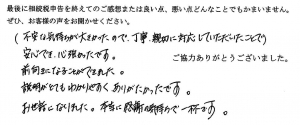 最後に相続税申告を終えてのご感想または良い点、悪い点どんなことでもかまいません。
ぜひ、お客様の声をお聞かせください。
(不安な気持ちが大きかったので、丁寧、親切に対応していただいたことで)
安心でき、心強かったです。
ご協力ありがとうございました。
前向きになることができました。
説明がとてもわかりやすくありがたかったです。
お世話になりました。本当に感謝の気持ちで一杯です。